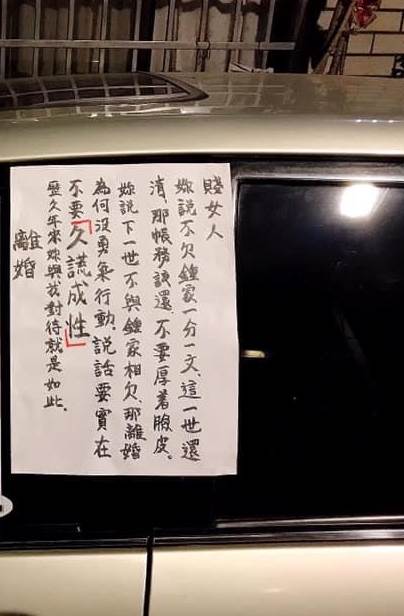 賤女人
妳說不欠鍾家一分一文、這一世還
清,那帳務該還、不要厚著臉皮。
妳說下一世不與鍾家相欠,那離婚
為何沒勇氣行動,說話要實在
不要「久謊成性」
歷久年來妳與我對待就是如此.
離婚